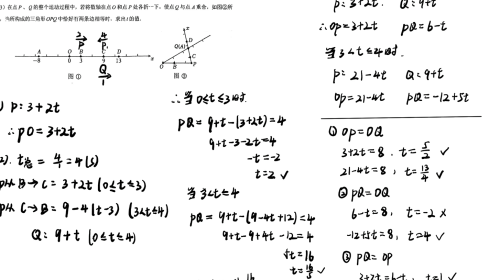 ) 在点 P、Q 的整个运动过程中，若将数轴在点 O 和点 P 处各折一下，使点 Q 与点 A 重合，如图②所
，当所构成的三角形 OPQ 中恰好有两条边相等时，求出 t 的值.
2 4
P P
A O B C D
-8 0 3 9 13
Q
1
图①
D
Q(A)
C
O B P
图②
) P: 3+2t
∴ PO = 3+2t
2). t总 = 4/1 = 4(s)
P从 B→C = 3+2t (0≤t≤3)
P从 C→B = 9-4(t-3) (3<t≤4)
Q: 9+t (0≤t≤4)
∴当 0≤t≤3时.
PQ = 9+t-(3+2t) = 4
9+t-3-2t=4
-t=-2
t=2 ✓
当 3<t≤4
PQ = 9+t-(9-4t+12) = 4
9+t-9+4t-12=4
5t=16
t=16/5 ✓
P: 3+2t. Q: 9+t
∴ OP = 3+2t PQ = 6-t
当 3<t≤4时.
P: 21-4t Q: 9+t
OP = 21-4t PQ = -12+5t
① OP = OQ
3+2t=8, t=5/2 ✓
21-4t=8, t=13/4 ✓
② PQ = OQ
6-t=8, t=-2 ×
-12+5t=8, t=4 ✓
③ PQ = OP
3+2t=6-t, t=1 ✓